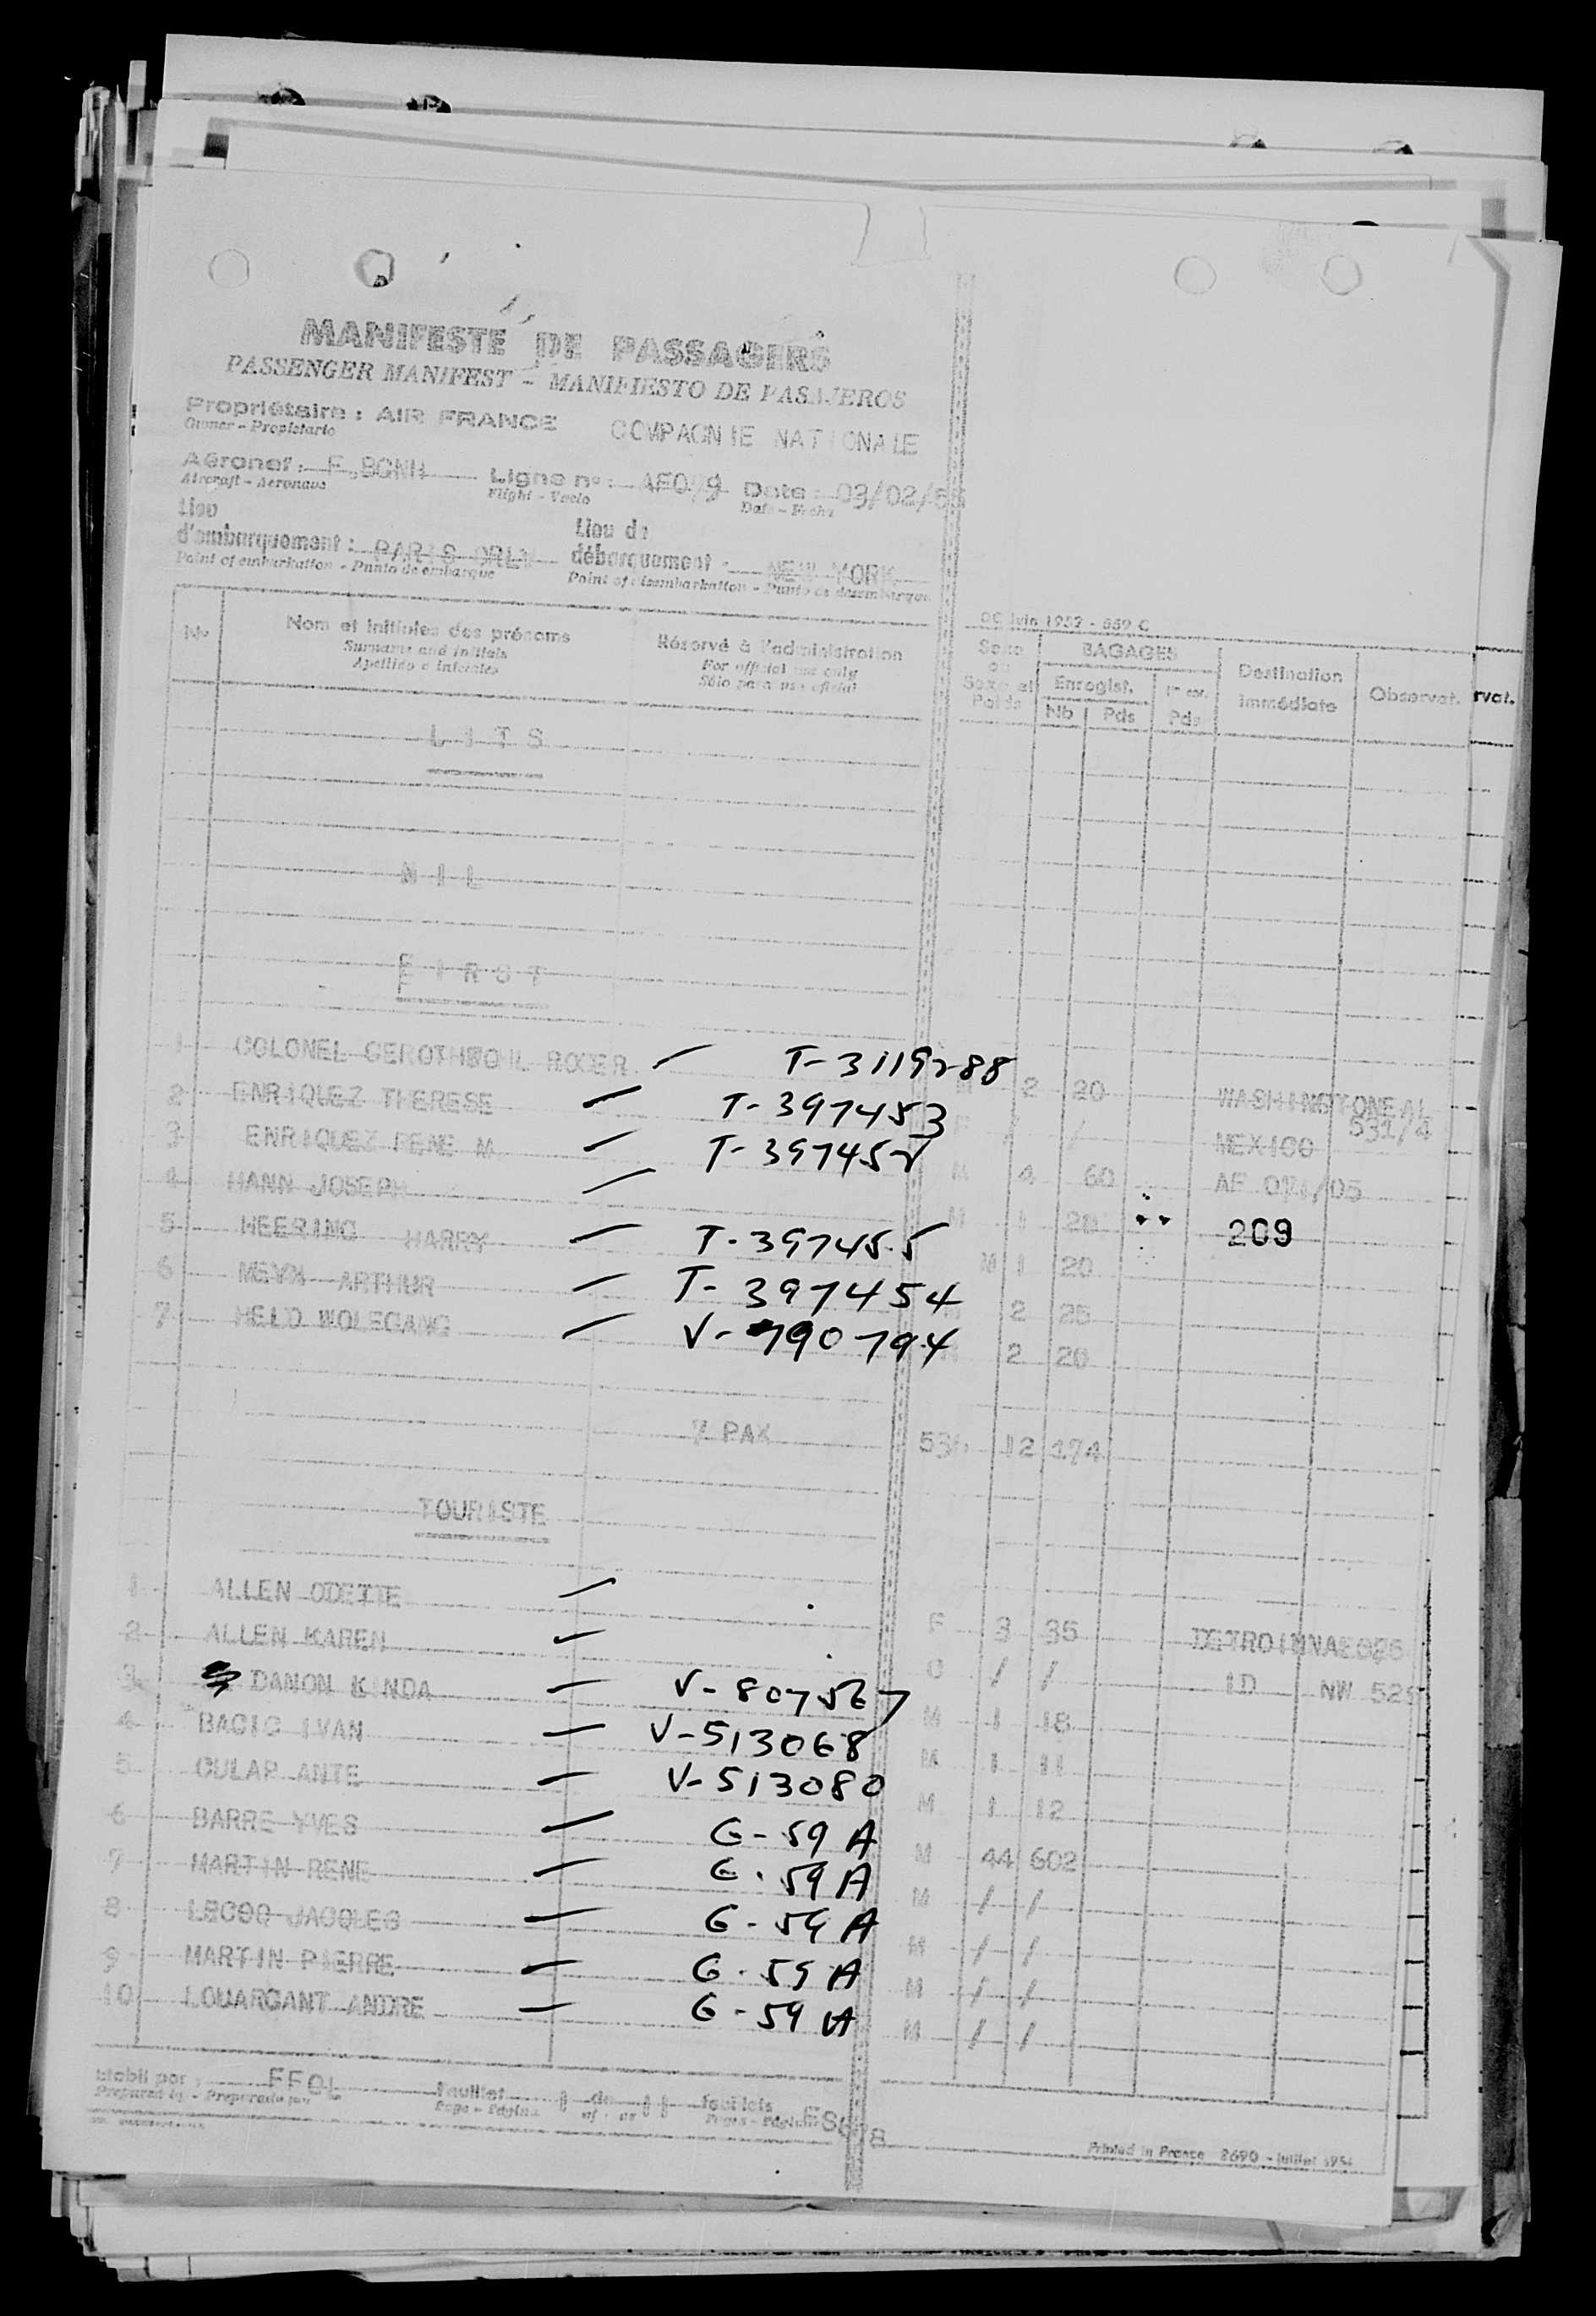 MANIFESTE DE PASSAGERS
PASSENGER MANIFEST - MANIFIESTO DE PASAJEROS
Propriétaire : AIR FRANCE COMPAGNIE NATIONALE
Owner - Propietario
Aéronef : F.BGNH Ligne n° : Date : 03/02/
Aircraft - Aeronave Flight - Vuelo Date - Fecha
Lieu d'embarquement : PARIS ORLY Lieu de débarquement : NEW YORK
Point of embarkation - Punto de embarque Point of disembarkation - Punto de desembarque
DC Juin 1952 - 559 C
N° Nom et initiales des prénoms Réservé à l'administration Sexe ou Sexe et Poids BAGAGES Destination immédiate Observat. rvat.
Surname and initials For official use only Enregist.
Apellido e iniciales Sólo para uso oficial Nb Pds Pds
LITS
NIL
FIRST
1 COLONEL GEROTHWOHL ROGER T-3119288 2 20 WASHINGTON EAL
2 ENRIQUEZ THERESE T-397453 F / / MEXICO 531/4
3 ENRIQUEZ RENE M T-397452 M 4 60 AF 071/05
4 HANN JOSEPH M 1 20 209
5 HEERING HARRY T-397455 M 1 20
6 MEYN ARTHUR T-397454 2 25
7 HELD WOLFGANG V-790794 2 20
7 PAX 12 174
TOURISTE
1 ALLEN ODETTE F 3 35
2 ALLEN KAREN / / ID NW
3 DANON V-807567 M 1 18
4 BACIC IVAN V-513068 M 1 11
5 CULAP ANTE V-513080 M 1 12
6 BARRE YVES G-59A M 44 602
7 MARTIN RENE G-59A M / /
8 LECOQ JACQUES G-59A M / /
9 MARTIN PIERRE G-59A M / /
10 LOUARGANT ANDRE G-59A M / /
Etabli par : Feuillet de 11 feuillets
Prepared by - Preparado por Page - Página of - de Pages - Páginas
Printed in France 8690 - Juillet 1954